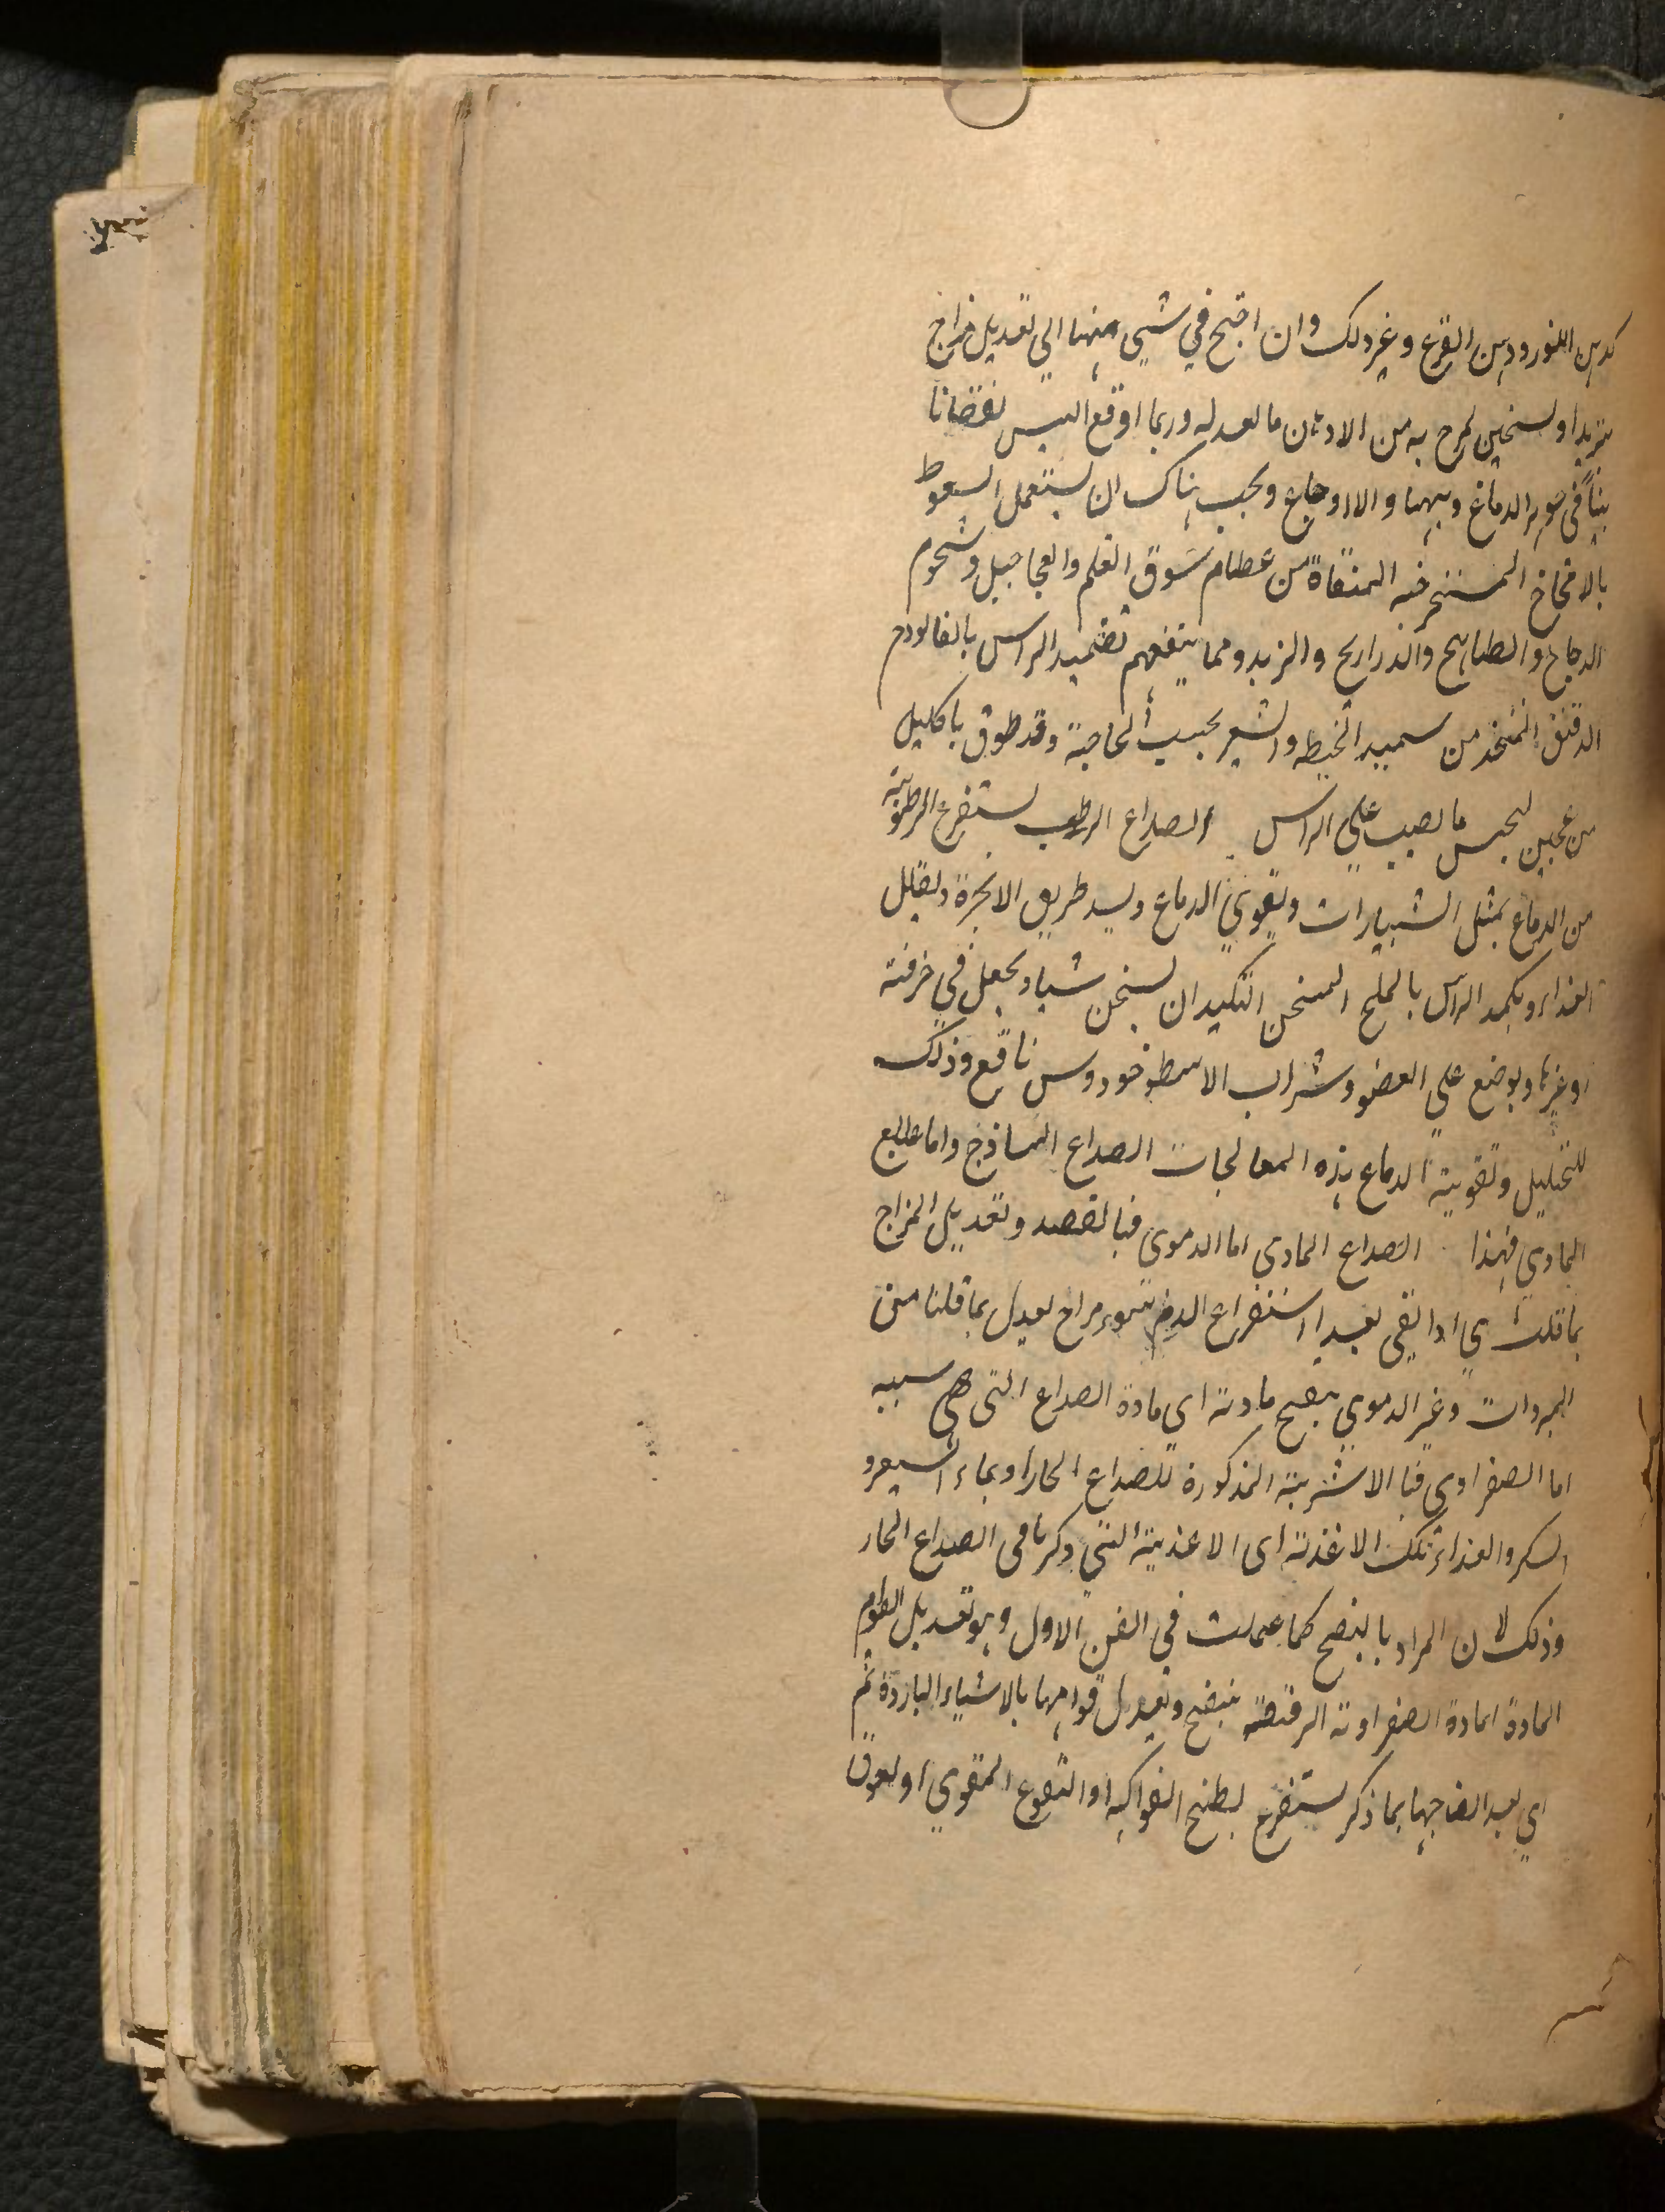 كدهن اللوز ودهن القرع وغير ذلك وان احتج في شيى منها الى تعديل مزاج
بتبريد او تسخين لمزج به من الادهان ما يعدله وربما اوقع اليبس نقصانا
بينا في جوهر الدماغ وبيهنا والا اوجاع ويجب هناك ان يستعمل السعوط
بالامخاخ المستخرجه المنقاة من عظام سوق الغنم والعجاجيل وشحوم
الدجاج والطياهيج والدراريج والزبد ومما ينفعهم تضميد الراس بالفالودج
الدقيق المتخذ من سميد الحنطه والشعير بحسب الحاجة وقد طوق باكليل
من عجين لحبس ما يصب على الراس الصداع الرطب يستفرغ الرطوبة
من الدماغ بمثل الشبيارات ويقوي الدماغ ويسد طريق الابخرة ويقلل
الغذاء ويكمد الراس بالملح المسخن التكميد ان يسخن شيا ويجعل في خرقة
او غيرها ويوضع على العضو وشراب الاسطوخودوس نافع وذلك
للتحليل وتقوية الدماغ هذه المعالجات الصداع الساذج واما علاج
المادي فهذا الصداع المادي اما الدموي فبالفصد وتعديل المزاج
بما قلت اي اذا بقي بعد استفراغ الدم سوء مزاج يعدل بما قلنا من
المبردات وغير الدموي ينضج مادته اي مادة الصداع التي هي سببه
اما الصفراوي فبالاشربة المذكورة للصداع الحار او بماء الشعير و
السكر والغذاء تلك الاغذية اي الاغذية التي ذكرنا في الصداع الحار
وذلك لان المراد بالنضج كما عملت في الفن الاول وهو تعديل القوام
المادة المادة الصفراوية الرقيقة ينضج ويعدل قوامها بالاشياء الباردة ثم
اي بعد انضاجها بما ذكر يستفرغ بطبخ الفواكه او النقوع المقوي او لعوق